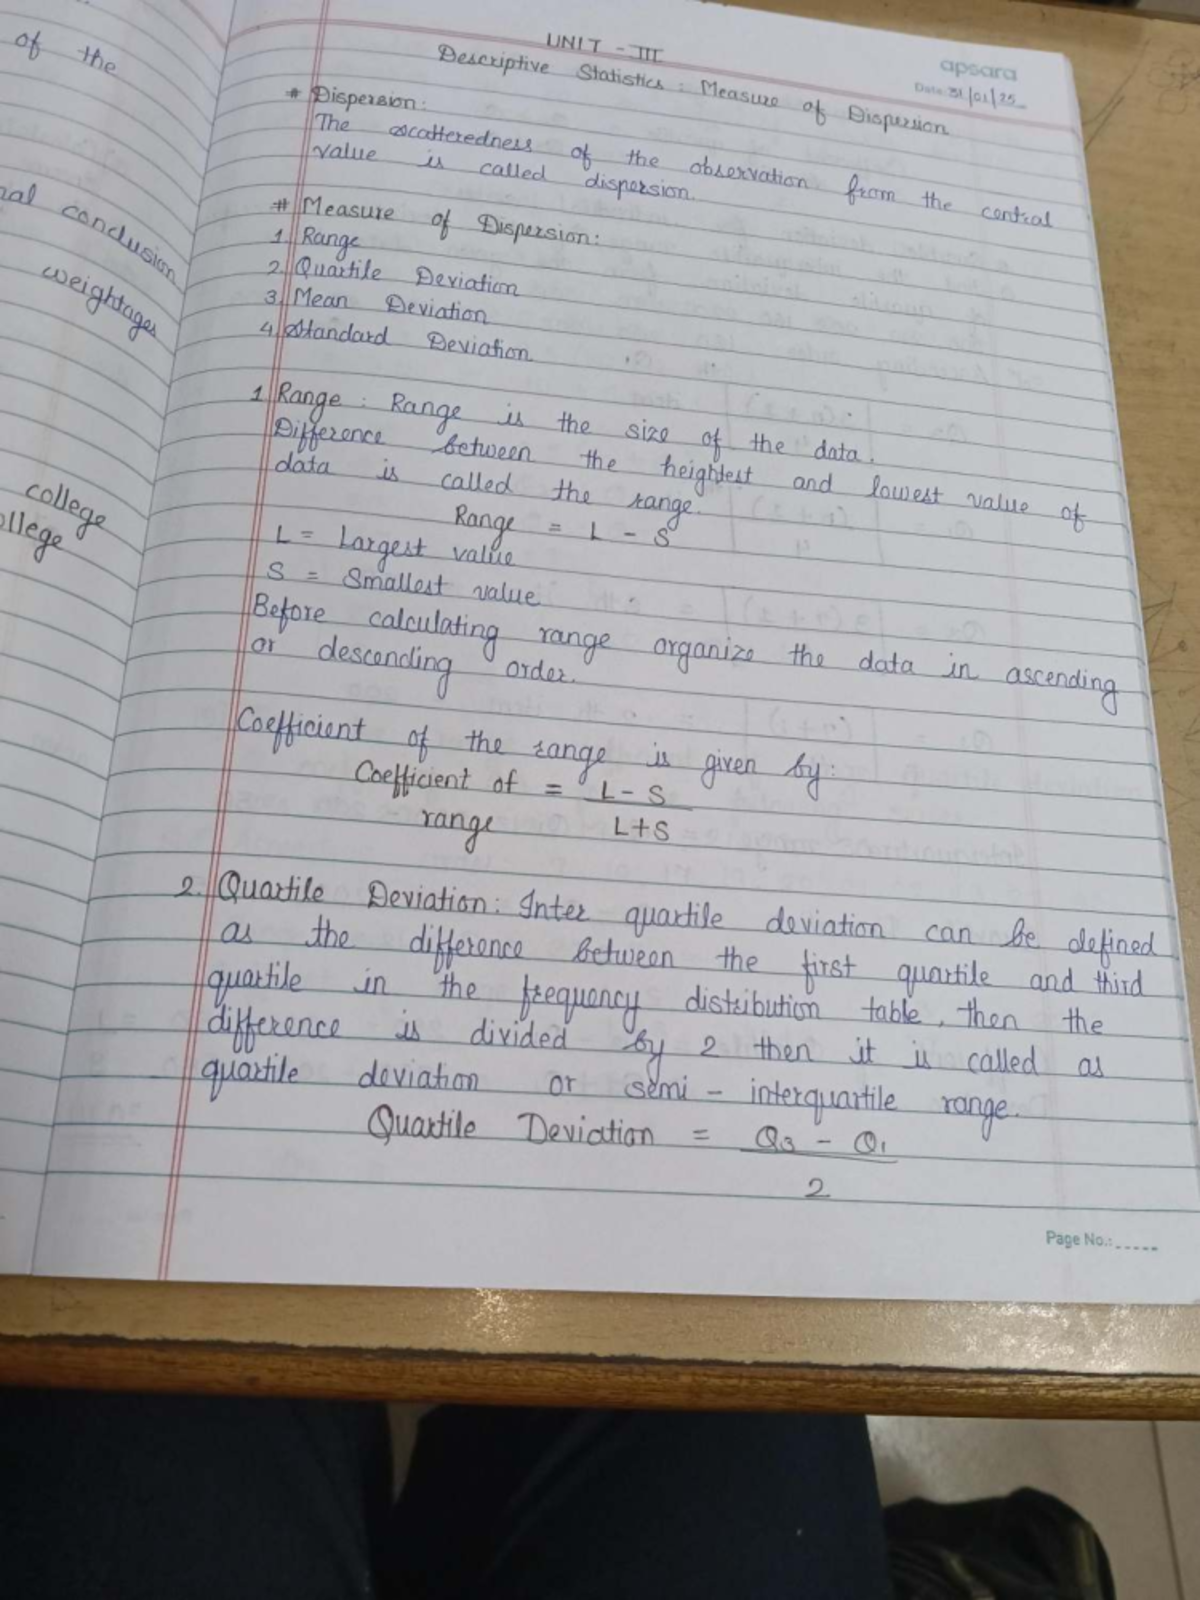 of the
nal conclusion
weightages
college
ollege
UNIT - III
apsara
Descriptive Statistics : Measure of Dispersion
Date: 31/01/25
# Dispersion:
The scatteredness of the observation from the central
value is called dispersion.
# Measure of Dispersion:
1. Range
2. Quartile Deviation
3. Mean Deviation
4. Standard Deviation
1. Range : Range is the size of the data.
Difference between the heightest and lowest value of
data is called the range.
Range = L - S
L = Largest value
S = Smallest value
Before calculating range organize the data in ascending
or descending order.
Coefficient of the range is given by:
Coefficient of = L - S
range L + S
2. Quartile Deviation: Inter quartile deviation can be defined
as the difference between the first quartile and third
quartile in the frequency distribution table, then the
difference is divided by 2 then it is called as
quartile deviation or semi - interquartile range.
Quartile Deviation = Q3 - Q1
2
Page No.: